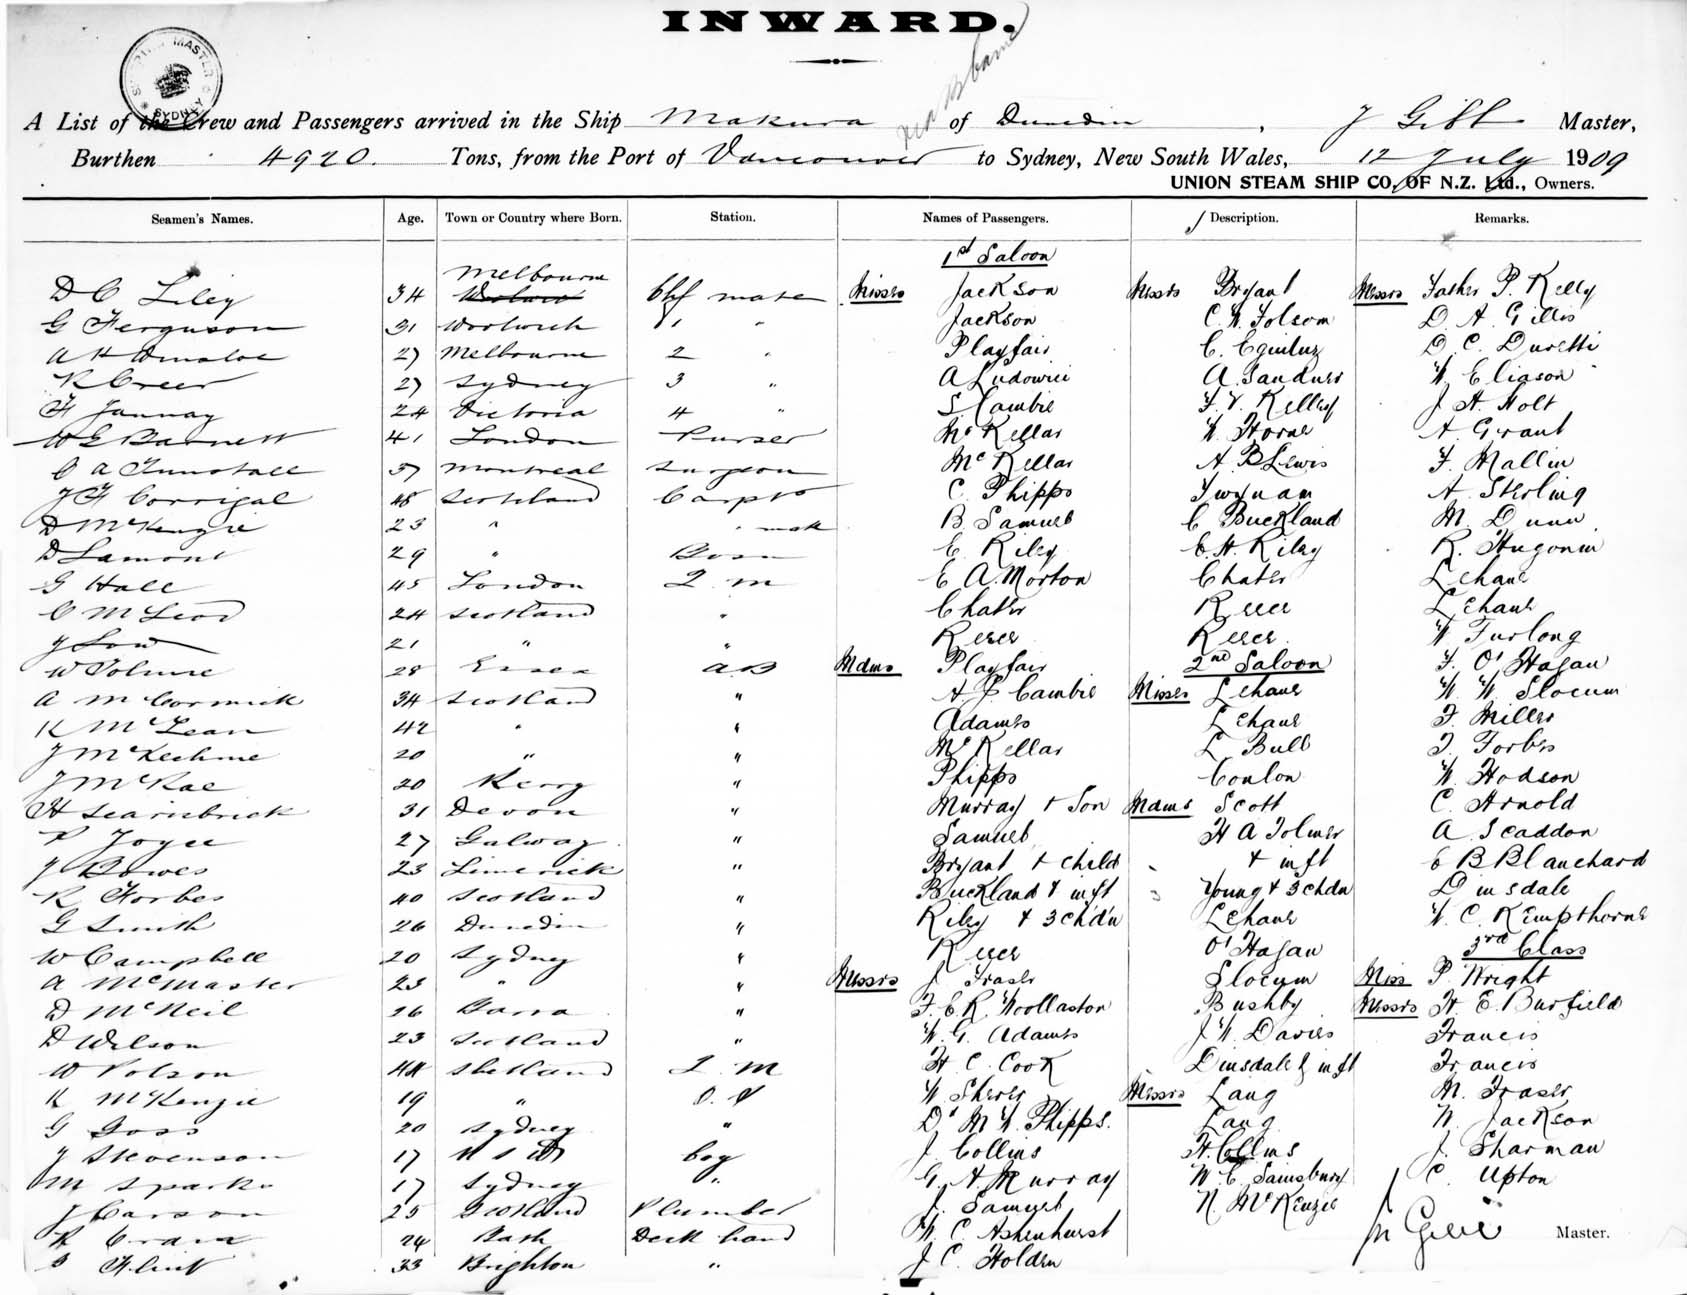 INWARD.
via Brisbane
SHIPPING MASTER SYDNEY
A List of the Crew and Passengers arrived in the Ship Makura of Dunedin, J Gibb Master,
Burthen 4920 Tons, from the Port of Vancouver to Sydney, New South Wales, 12 July 1909
UNION STEAM SHIP CO. OF N.Z. Ltd., Owners.
Seamen's Names. Age. Town or Country where Born. Station. Names of Passengers. Description. Remarks.
1st Saloon
Melbourne
D C Liley 34 chf mate Misses Jackson Messrs Bryant Messrs Father P. Kelly
G Ferguson 31 Woolwich 1 " Jackson C. W. Folsom D. A. Gillis
27 Melbourne 2 " Playfair C. Eguiluz D. C. Duretti
R Creer 27 Sydney 3 " A Ludowici A. Sanders W. Eliason
F Jannay 24 Victoria 4 " S. Cambie F. V. Kelley J H Holt
W E Barnett 41 London Purser McKellar W. Horne A Grant
C A Tunstall 57 Montreal Surgeon McKellar A. B Lewis F. Mallin
J F Corrigal 48 Scotland Carptr C. Phipps Twynam A. Sterling
D McKenzie 23 " " mate B. Samuels C Buckland M. Dunn
D Lamont 29 " Bosn E. Riley E. H. Riley R. Hugonin
G Hall 45 London Q. M E A. Morton Chater Lehane
C McLeod 24 Scotland " Chater Reece Lehane
J Low 21 " " Reece Reece W Furlong
W 28 Essex A B Mdms Playfair 2nd Saloon F. O'Hagan
A McCormick 34 Scotland " A. J. Cambie Misses Lehane W. W. Slocum
K McLean 42 " " Adams Lehane F. Miller
J McKechnie 20 " " McKellar L Bull J. Forbes
J McRae 20 Kerry " Phipps Conlon W. Hodson
H Scarisbrick 31 Devon " Murray & Son Mdms Scott C. Arnold
P Joyce 27 Galway " Samuels H A Tolmer A. Scaddon
J Bowes 23 Limerick " Bryant & child & inft E B Blanchard
R Forbes 40 Scotland " Buckland & inft Young & 3 chdn Dinsdale
G Smith 26 Dunedin " Riley & 3 ch'd'n Lehane W. C. Kempthorne
W Campbell 20 Sydney " Reece O'Hagan 3rd Class
A McMaster 23 " " Messrs J. Fraser Slocum Miss P. Wright
D McNeil 26 Barra " F. E. R. Woollaston Bushby Messrs H. E. Burfield
D Wilson 23 Scotland " W. G. Adams J. W. Davies Francis
W Polson 44 Shetland Q. M H C. Cook Dinsdale & inft Francis
K McKenzie 19 " O. S W. Sherer Messrs Lang M. Fraser
G Goss 20 Sydney " Dr M W. Phipps. Lang N. Jackson
J Stevenson 17 boy J. Collins H. Collins J. Sharman
M Sparks 17 Sydney " G. A. Murray W. C. Sainsbury C. Upton
J Carson 25 Scotland Plumber J. Samuel N. McKenzie
24 Deck hand W. C. Ashenhurst J Gibb Master.
Flint 33 Brighton " J C. Holden